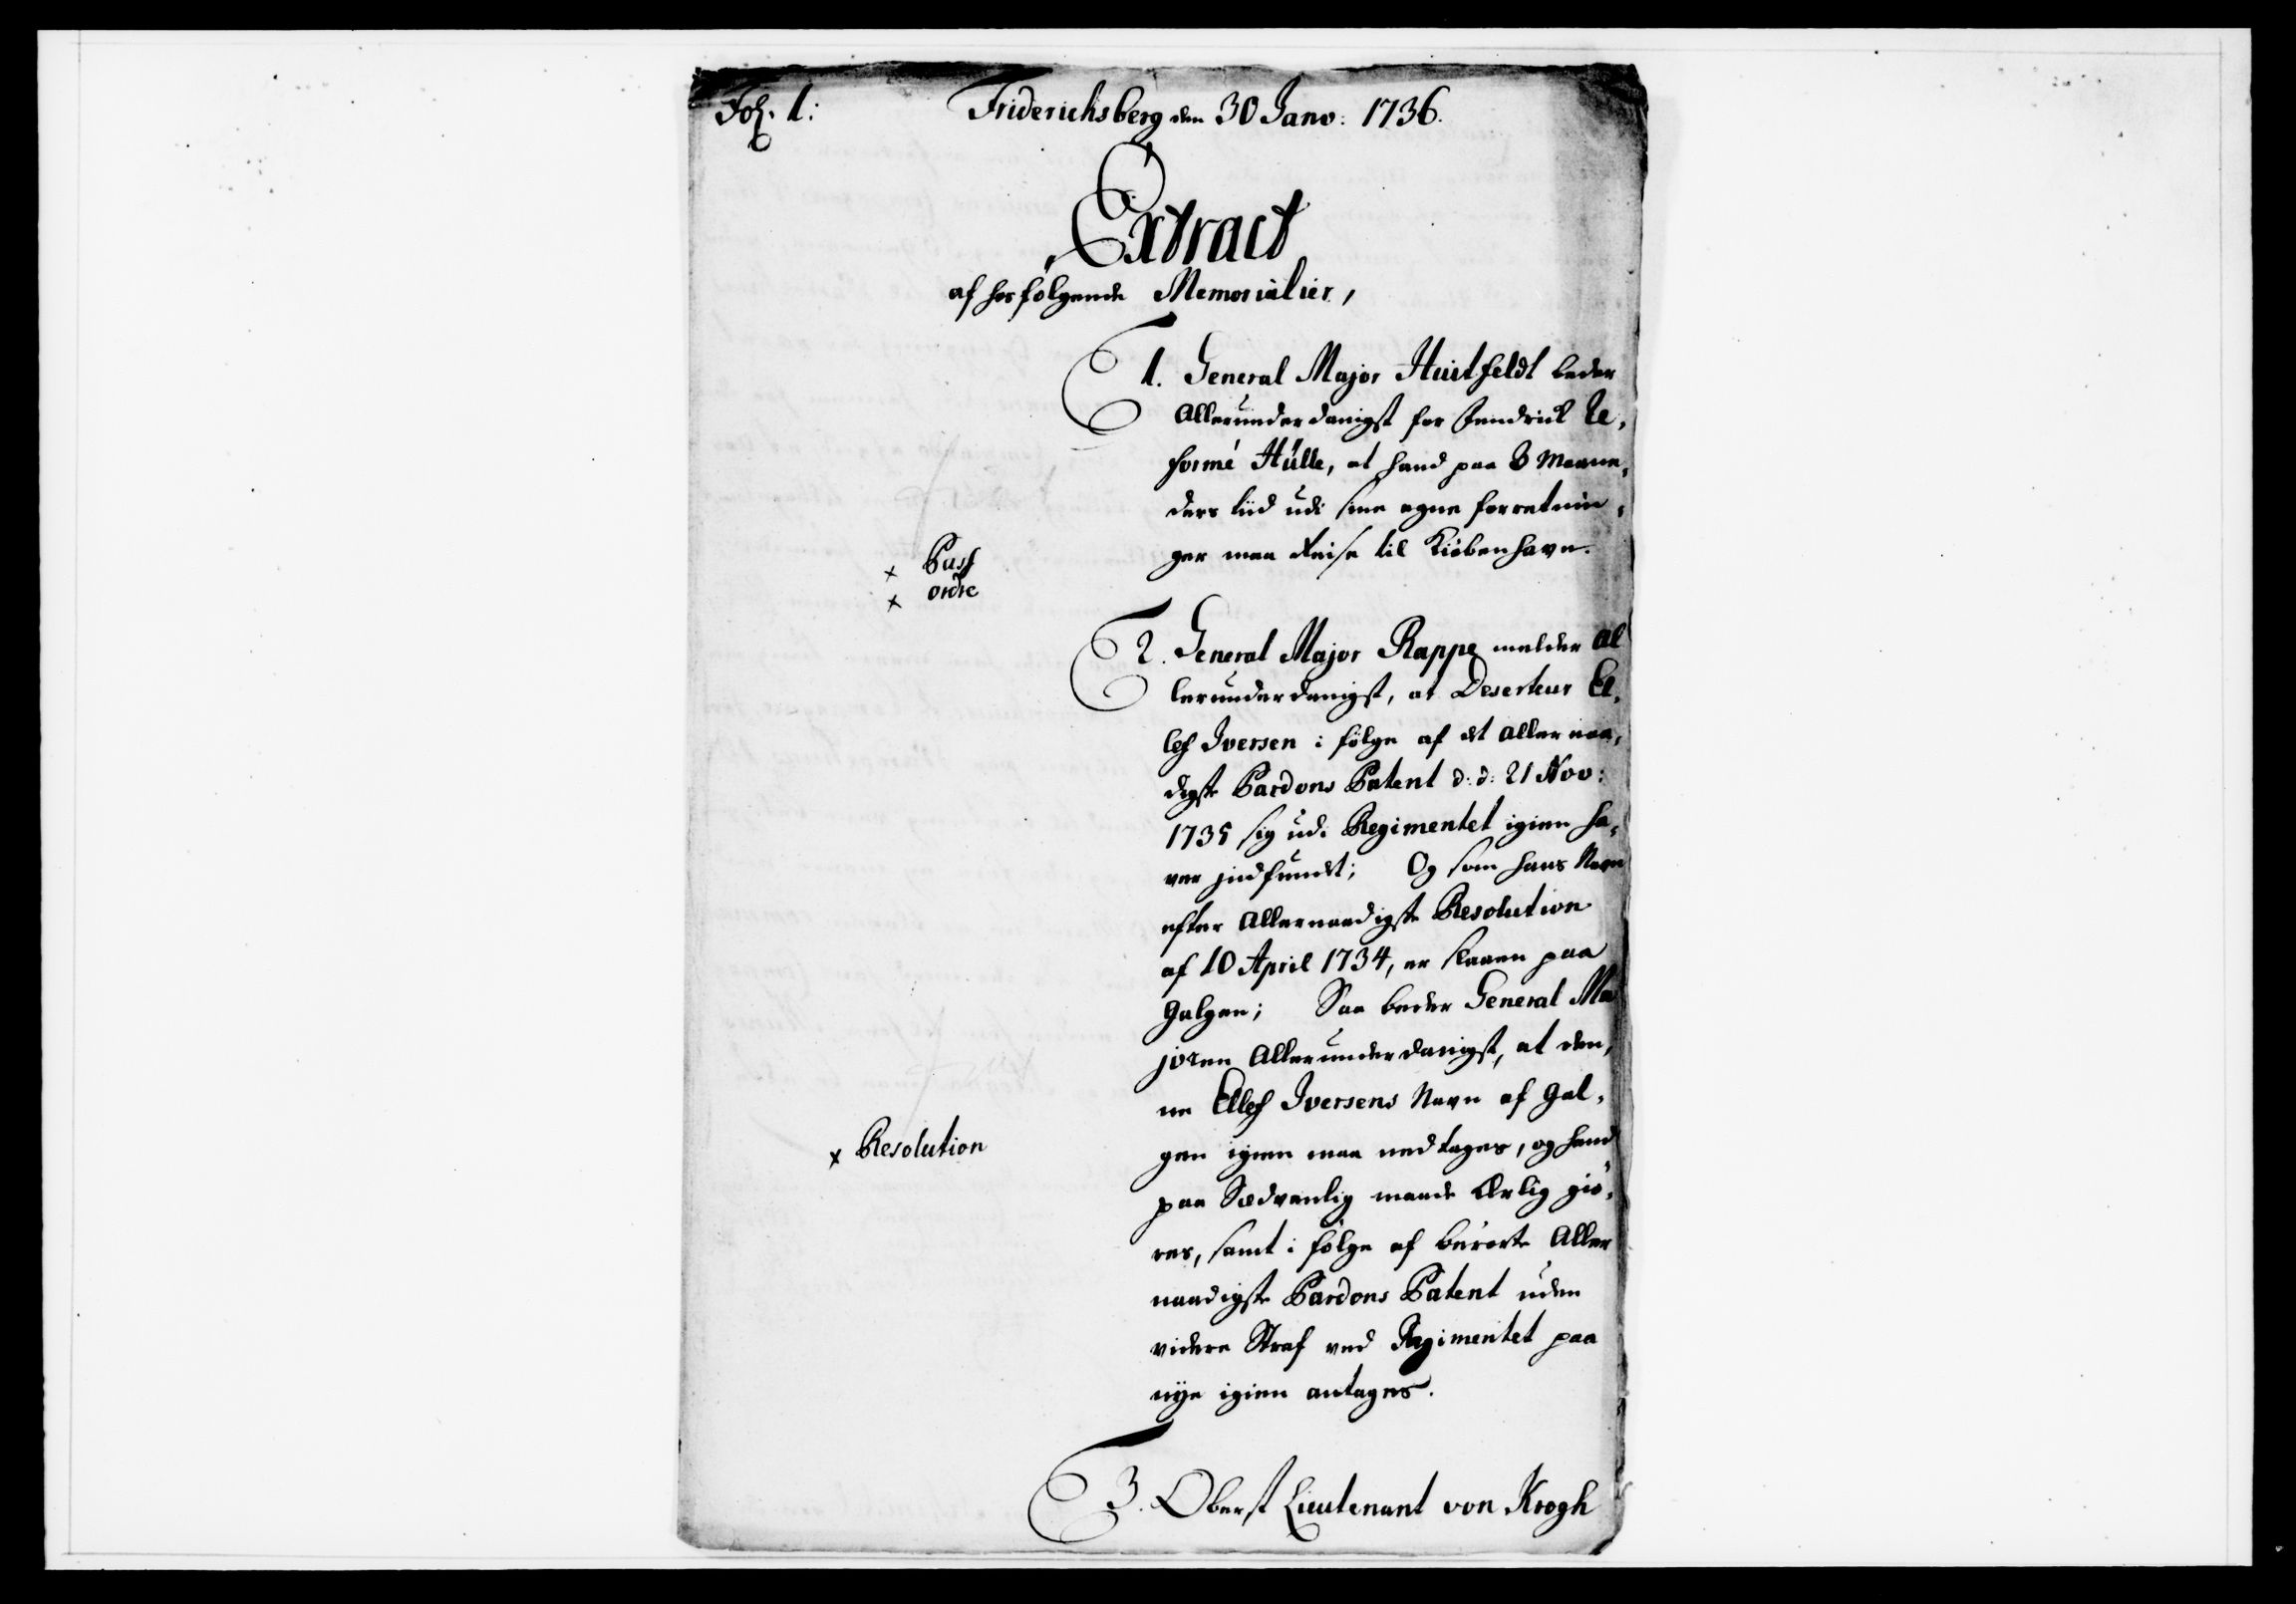 Fol. 1:
Friderichsberg den 30 Janv: 1736.
Extract
af hosfölgende Memorialier,
1. General Major Huitfeldt beder
Allerunderdanigst for Fendrick Re,
formé Hülle, at hand paa 3 Maane,
ders tiid udi sine egne forretnin,
ger maa Reise til Kiöbenhavn.
x Pass
x ordre
2. General Major Rappe melder Al
lerunderdanigst, at Deserteur El,
lef Iversen i fölge af det Allernaa,
digste Pardons Patent d: d: 21 Nov:
1735 sig udi Regimentet igien ha,
ver jndfundet; Og som hans Navn
efter Allernaadigste Resolution
af 10 April 1734, er slaaen paa
Galgen; Saa beder General Ma
joren Allerunderdanigst, at den,
ne Ellef Iversens Navn af Gal,
gen igien maa nedtages, og hand
paa Sædvanlig maade Ærlig giö,
res, samt i fölge af berörte Aller
naadigste Pardons Patent uden
videre Straf ved Regimentet paa
nÿe igien antages.
x Resolution
3. Oberst Lieutenant von Krogh